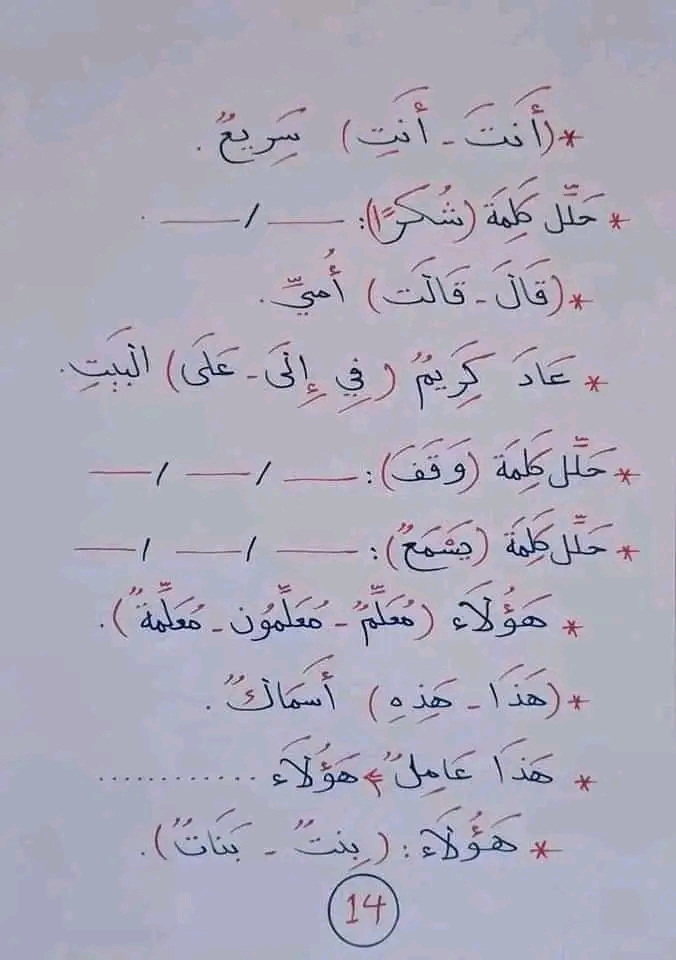 *(أَنتَ - أَنتِ) سَرِيعٌ.
* حَلِّل كَلِمَة (شُكرًا): ——— / ———.
*(قَالَ - قَالَت) أُمِّي.
* عَادَ كَرِيمٌ (فِي إِلَى - عَلَى) البَيتِ.
* حَلِّل كَلِمَة (وَقَفَ): ——— / ——— / ———
* حَلِّل كَلِمَة (يَسْمَعُ): ——— / ——— / ———
* هَؤُلَاَء (مُعَلِّمٌ - مُعَلِّمُون - مُعَلِّمَةٌ).
*(هَذَا - هَذِهِ) أَسمَاكٌ.
* هَذَا عَامِلٌ ⇐ هَؤُلَاَء ............
* هَؤُلَاَء: (بِنتٌ - بَنَاتٌ).
14